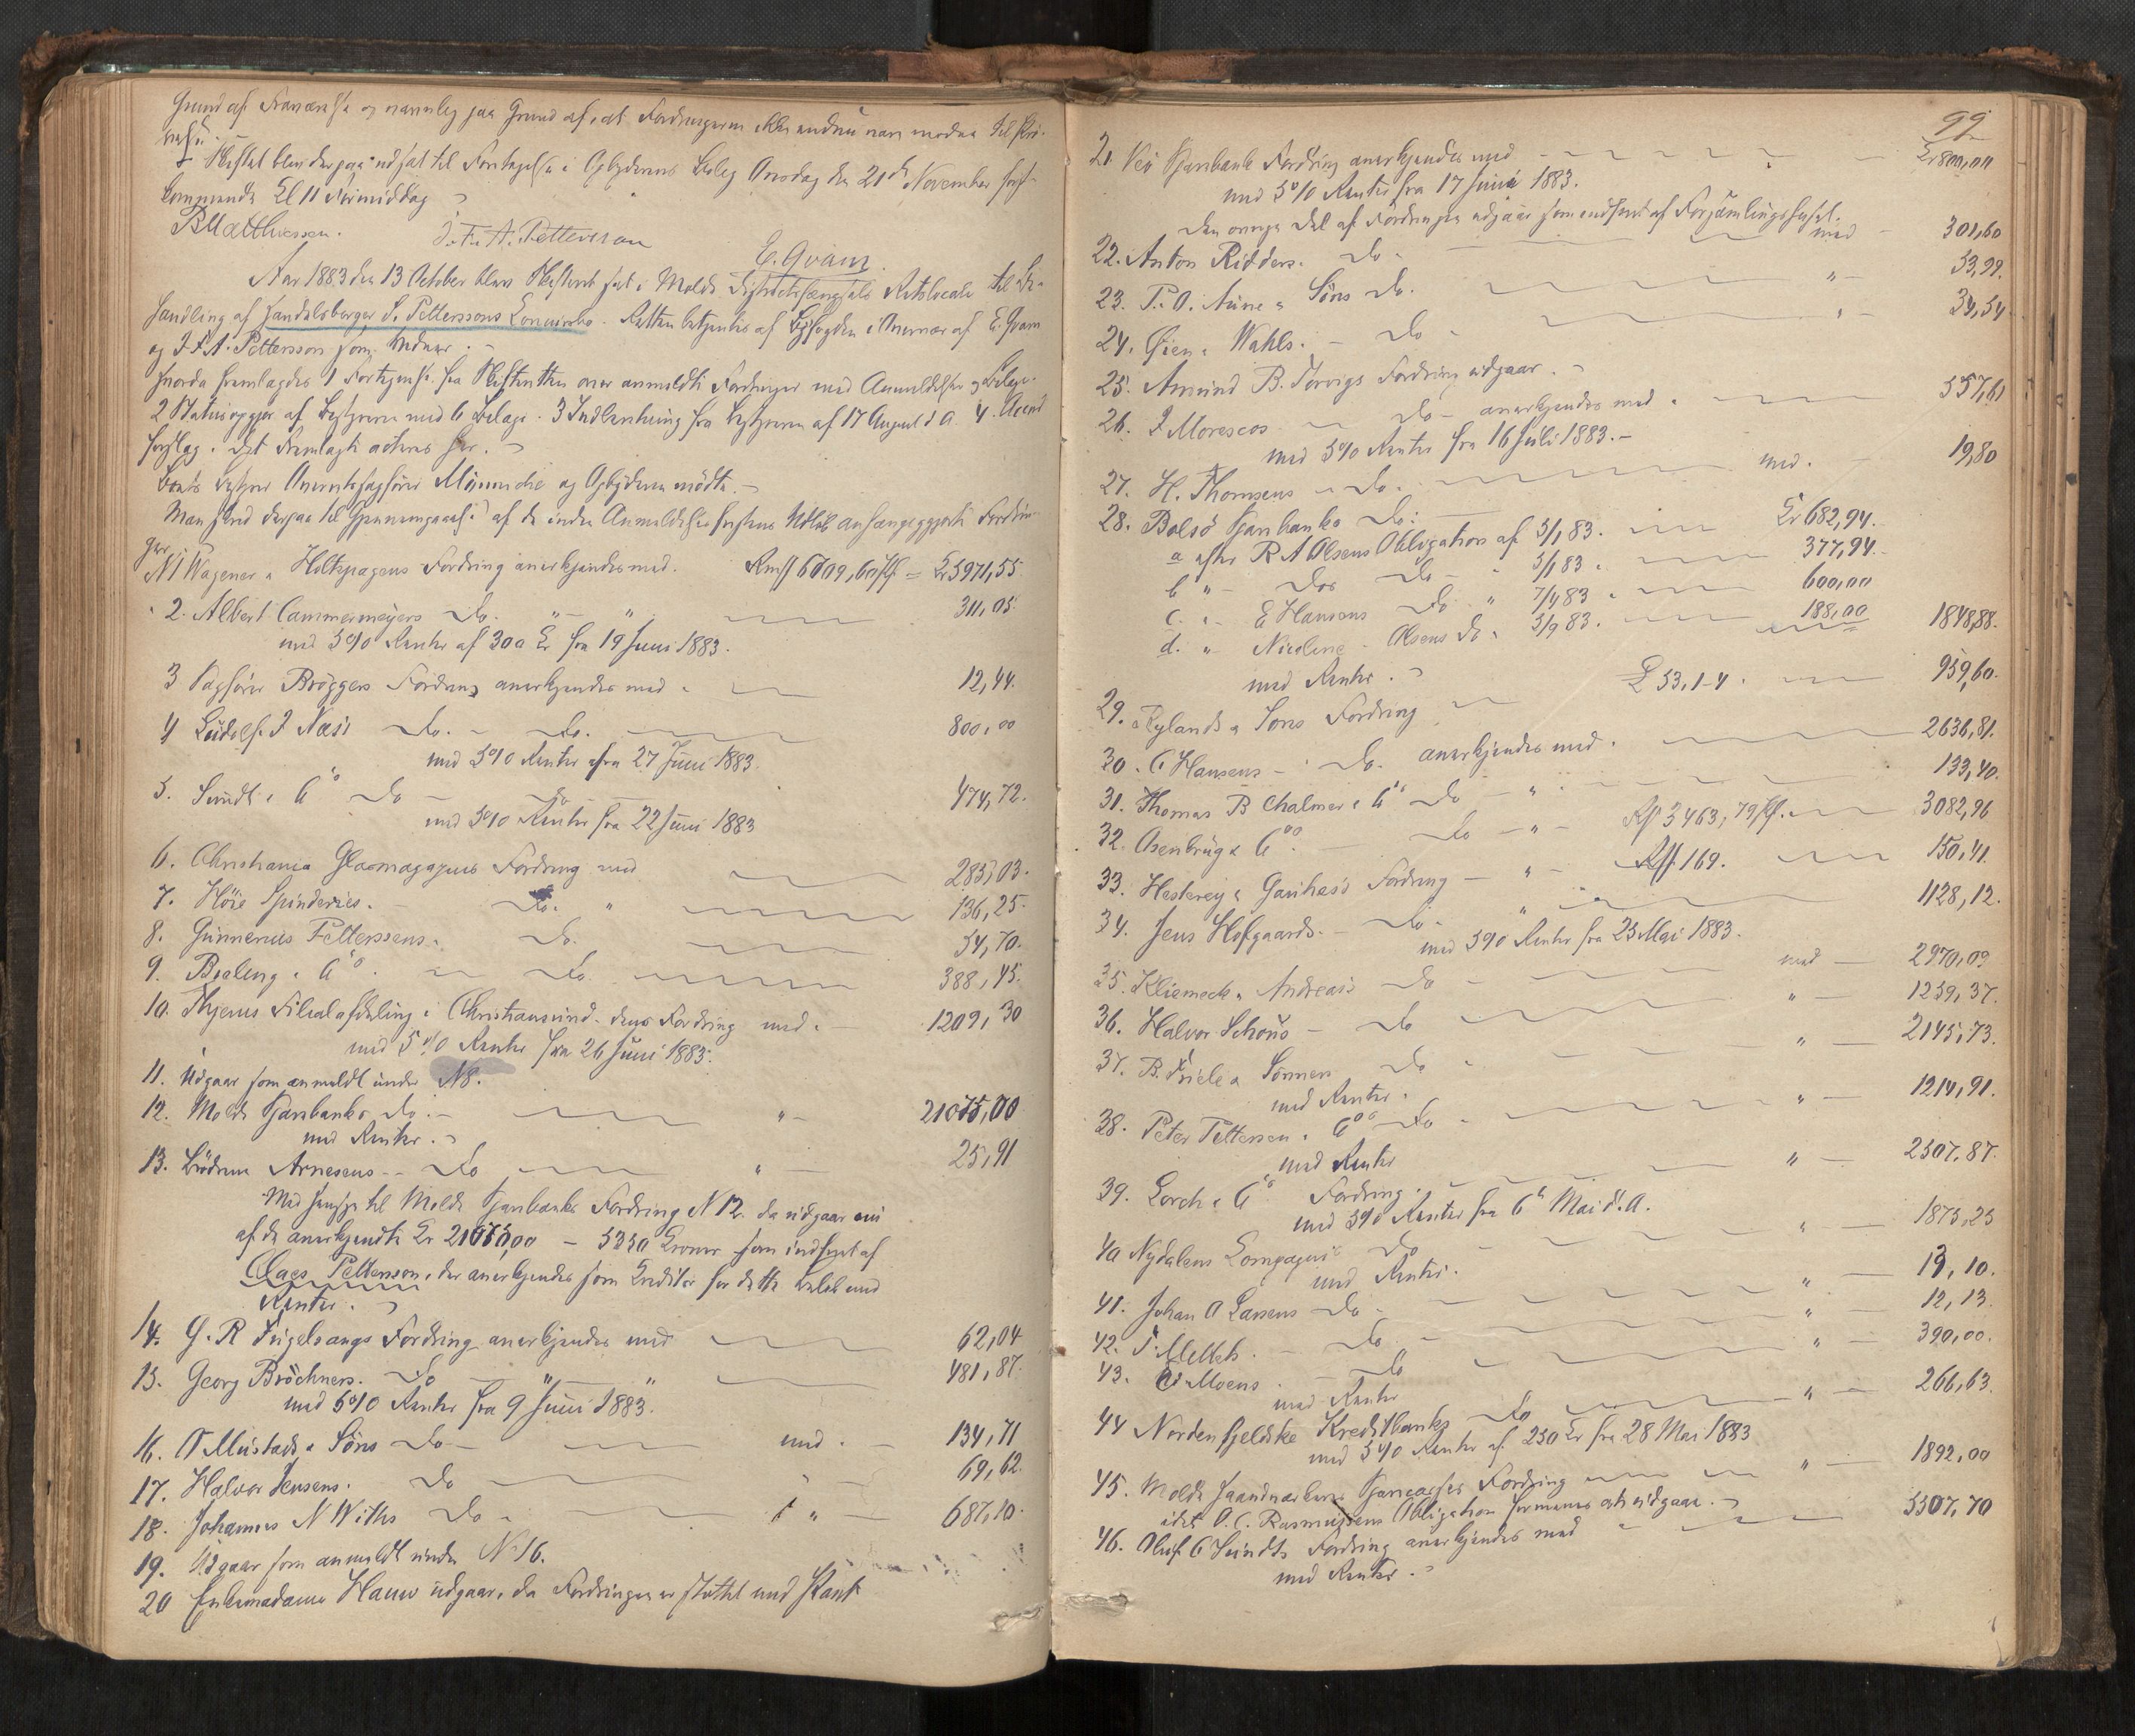 Grund af Fraværelse og navnlig paa Grund af, at Fordringerne ikke endnu vare modne til Prø-
velse.
Skiftet blev derpaa udsat til Foretagelse i Opbyderens Bolig Onsdag den 21de November først-
kommende Kl 11 Formiddag
BMatthiessen. J. F. A. Pettersson E. Qvam.
Aar 1883 den 13 October blev Skifteret sat i Molde Districtsfængsels Retslocale til Be-
handling af Handelsborger S. Petterssons Concursbo. Retten betjentes af Byfogden i Overvær af E. Qvam
og J. F. A. Pettersson som Vidner.
Hvorda fremlagdes 1 Fortegnelse fra Skifteretten over anmeldte Fordringer med Anmeldelser og Bilage.
2 Statusopgjør af Bestyreren med 6 Bilage. 3 Indberetning fra Bestyreren af 17 August d A. 4. Accord
forslag. Det Fremlagte acteres her.
Boets Bestyrer Overretssagfører Münniche og Opbyderen mødte.
Man skred derpaa til Gjennemgaaelse af de inden Anmeldelsesfristens Udløb anhængiggjorte Fordrin-
ger
N 1 Wagener & Holtzhagens Fordring anerkjendes med. Rm 6709,60 Pf = Kr 5971,55
2. Albert Cammermeyers Do. " " 311,05
med 5% Renter af 300 Kr fra 19 Juni 1883.
3 Sagfører Brøggers Fordring anerkjendes med 12,44.
4 Ludolf J Næss Do. Do. 800,00
med 5% Renter fra 27 Juni 1883.
5. Sundt & Co Do Do 474,72.
med 5% Renter fra 22 Juni 1883
6. Christiania Glasmagazins Fordring med 285,03.
7. Höie Spinderies. Do. " 136,25.
8. Gunnerius Pettersens. Do. 54,70.
9. Bealing & Co. Do 388,45.
10. Thjerus Filialafdeling i Christiansund. dens Fordring med. 1209,30
med 5% Renter fra 26 Juni 1883.
11. Udgaar som anmeldt under N 8.
12. Molde Sparebanks Do. " 21075,00
med Renter.
13. Brødrene Arnesens Do " 25,91
Med Hensyn til Molde Sparebanks Fordring N 12. da udgaar
af de anerkjendte Kr 21075,00 – 5350 Kroner som indfriet af
Claes Pettersson, der anerkjendes som Kreditor for dette Beløb med
Renter.
14. G. R Fugelsangs Fordring anerkjendes med 62,04
15. Georg Bröchners. Do " " 481,87.
med 5% Renter fra 9 Juni 1883.
16. O Mustads & Söns Do med. 134,71
17. Halvor Jensens. Do 69,62.
18. Johannes N Withs Do " 687,10.
19. Udgaar som anmeldt under N 16.
20 Enkemadame Hauw udgaar, da Fordringen er støttet med Pant
99
21. Veö Sparebank Fordring anerkjendes med Kr 800,00
med 5% Renter fra 17 Juni 1883.
Den øvrige Del af Fordringen udgaaer som
22. Anton Ridders. Do. med 301,60
23. P. O. Aune & Söns Do. " 53,99.
24. Öien & Wahls. Do " 34,54.
25. Amund B. Torvigs Fordring udgaar.
26. J Morescos Do anerkjendes med 557,61
med 5% Renter fra 16 Juli 1883.
27. H. Thomsens Do. med. 19,80
28. Bolsö Sparebanks Do:
a efter R A Olsens Obligation af 3/1 83. Kr 682,94.
b " Dos Do " 3/1 83. 377,94.
c. " E Hansens Do " 7/4 83 600,00
d. " Nicoline Olsens Do " 3/9 83. 188,00 1848,88.
med Renter.
29. Rylands & Sons Fordring £ 53.1-4. 959,60.
30. C Hansens Do. anerkjendes med. 2636,81.
31. Thomas B Chalmer & Co Do " 133,40.
32. Osenbrüg & Co. Do " Rf 3463,79 Pf. 3082,96
33. Hesterey & Fordring " Rf 169. 150,41.
34. Jens Hofgaards. Do. " 1128,12.
med 5% Renter fra 25 Mai 1883.
35. Kliemeck & Andreas's Do med 2970,09
36. Halvor Schous Do " 1259,37.
37. B. Friele & Sönners Do " 2145,73.
med Renter.
38. Peter Pettersen & Co Do " 1214,91.
med Renter
39. Lorck & Co Fordring. " 2307,87.
med 5% Renter fra 6te Mai d. A.
40 Nydalens Compagnie Do " 1875,25
med Renter.
41. Johan A Larsens Do " 13,10.
42. T. Mellbs. Do " 12,13.
43. O Moens Do " 390,00.
med Renter
44 Nordenfjeldske Kreditbanks Do " 266,63.
med 5% Renter af 250 Kr fra 28 Mai 1883
45. Molde Haandværkeres Sparecasses Fordring " 1892,00
idet O. C. Rasmussens Obligation formenes at udgaar.
46. Oluf C Sundts Fordring anerkjendes med 5507,70
med Renter.